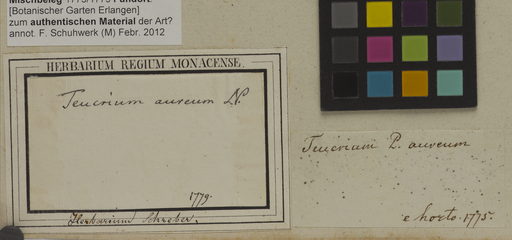 Mischbeleg 1775/1779 Fundort:
[Botanischer Garten Erlangen]
zum authentischen Material der Art?
annot. F. Schuhwerk (M) Febr. 2012
HERBARIUM REGIUM MONACENSE.
Teucrium aureum
1779.
Herbarium Schreber.
Teucrium P. aureum
e horto. 1775.